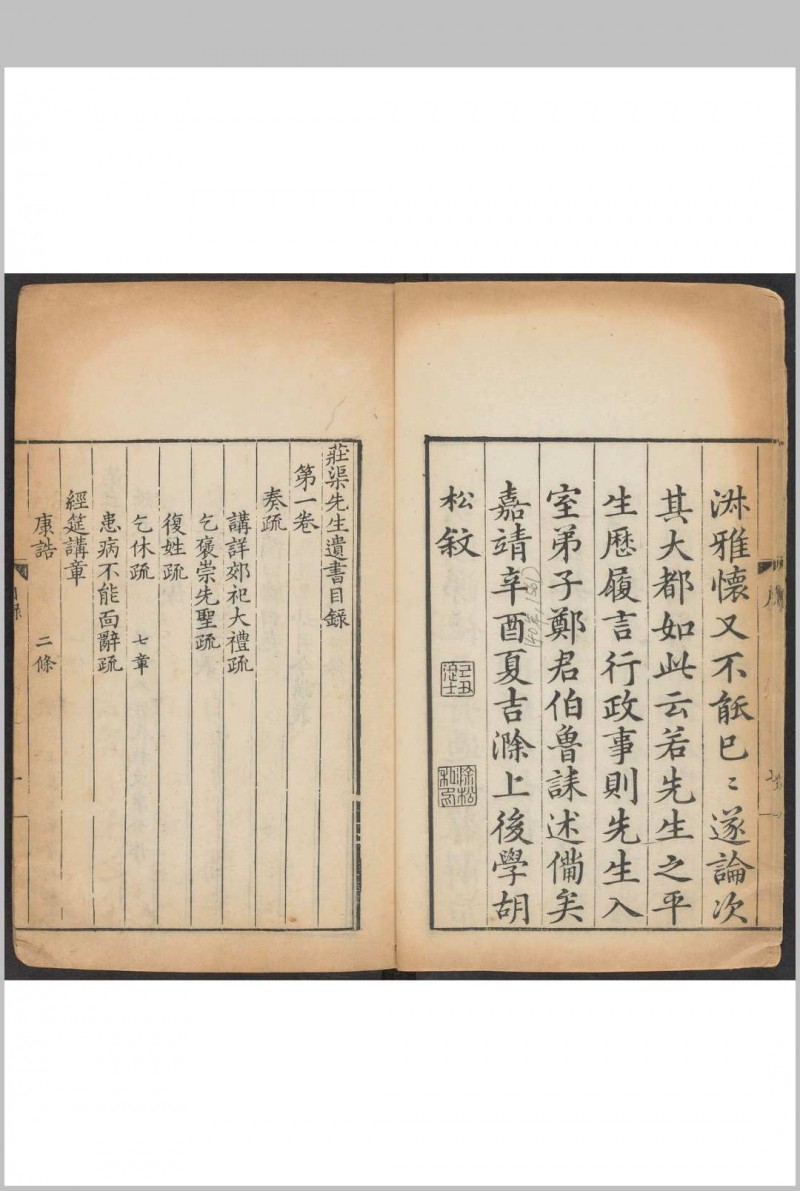 淋雅懷又不能巳〻遂論次
其大都如此云若先生之平
生歷履言行政事則先生入
室弟子鄭君伯魯誄述備矣
嘉靖辛酉夏吉滁上後學胡
松敘
莊渠先生遺書目錄
第一卷
奏疏
講詳郊祀大禮疏
乞褒崇先聖疏
復姓疏
乞休疏 七章
患病不能面辭疏
經筵講章
康誥 二條